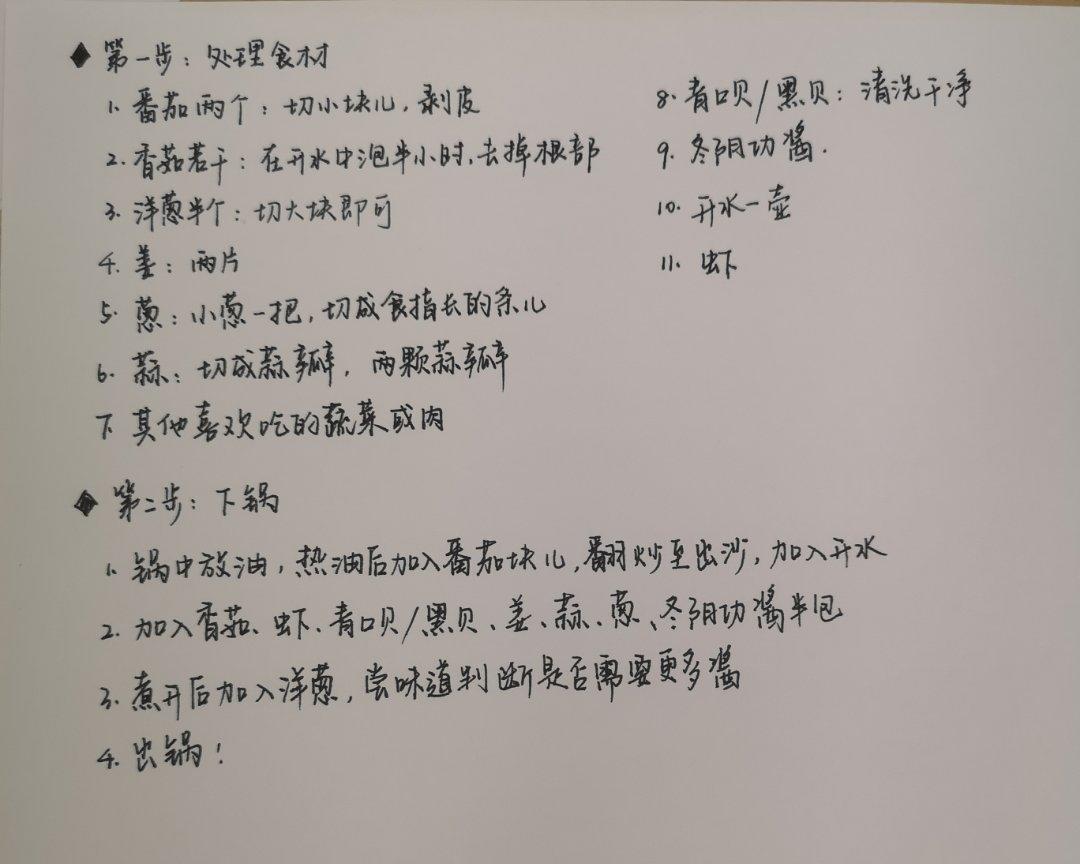 ◆ 第一步：处理食材
1. 番茄两个：切小块儿，剥皮
2. 香菇若干：在开水中泡半小时，去掉根部
3. 洋葱半个：切大块即可
4. 姜：两片
5. 葱：小葱一把，切成食指长的条儿
6. 蒜：切成蒜瓣，两颗蒜瓣
7. 其他喜欢吃的蔬菜或肉
8. 青口贝/黑贝：清洗干净
9. 冬阴功酱.
10. 开水一壶
11. 虾
◆ 第二步：下锅
1. 锅中放油，热油后加入番茄块儿，翻炒至出沙，加入开水
2. 加入香菇、虾、青口贝/黑贝、姜、蒜、葱、冬阴功酱半包
3. 煮开后加入洋葱，尝味道判断是否需要更多酱
4. 出锅！